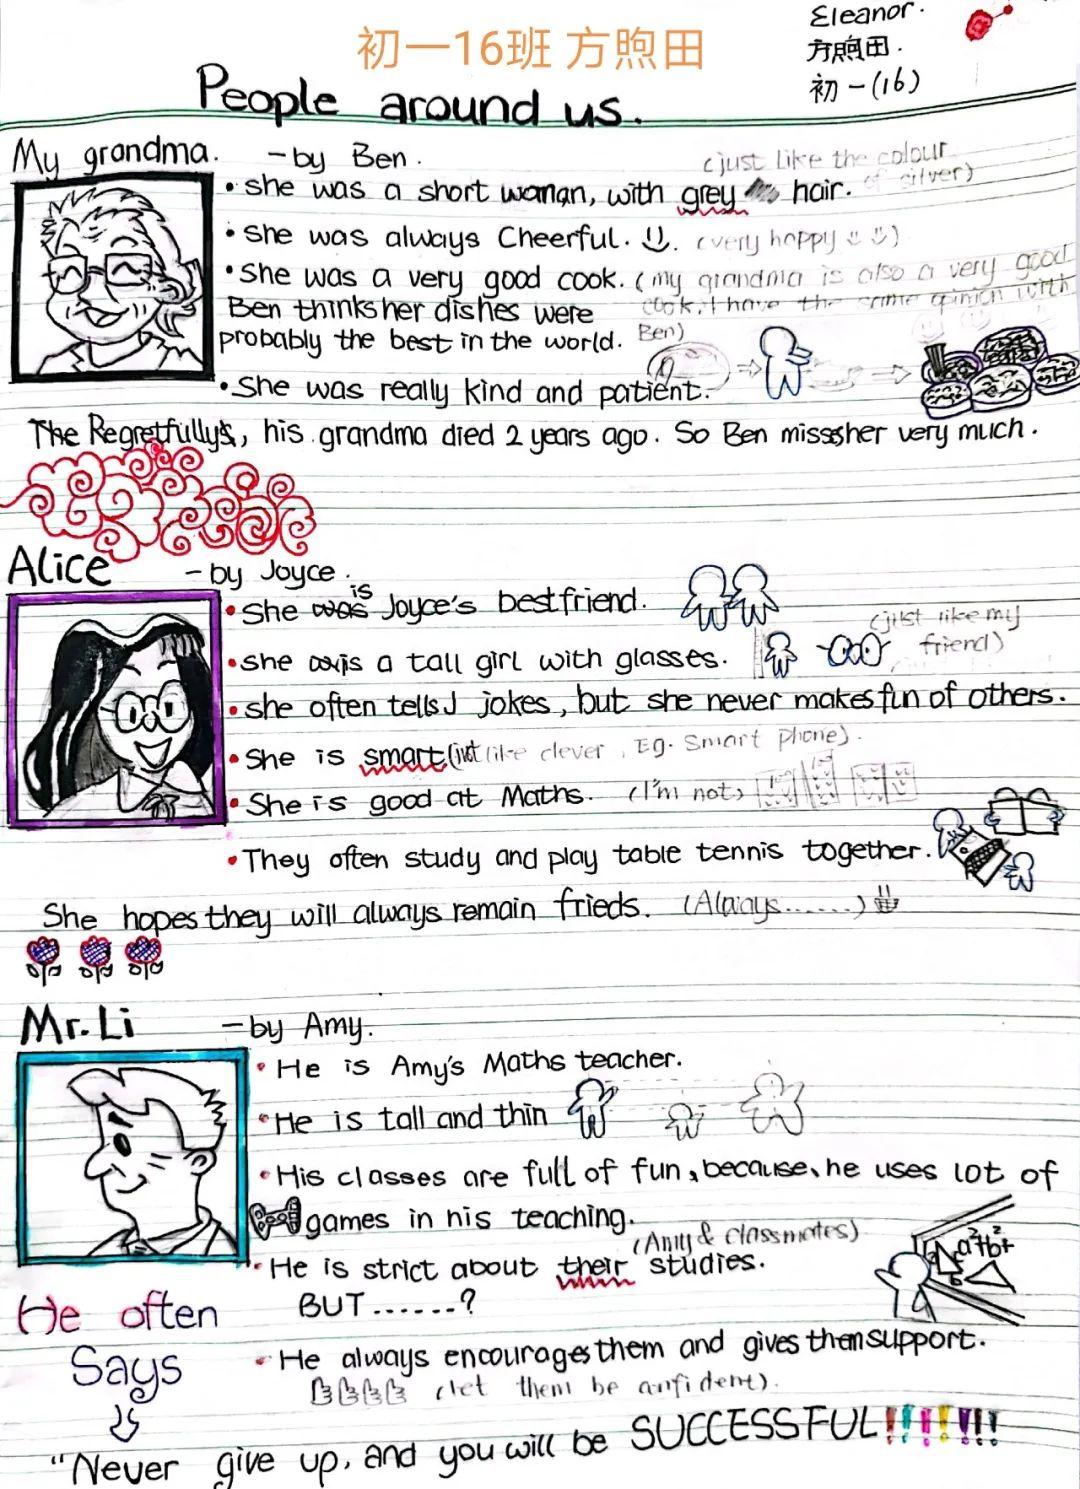 初一16班 方煦田
Eleanor.
方煦田.
初一(16)
People around us.
My grandma. -by Ben.
(just like the colour of silver)
• she was a short woman, with grey hair.
• she was always Cheerful. (very happy)
• She was a very good cook. (my grandma is also a very good
Ben thinks her dishes were cook, I have the same opinion with
probably the best in the world. Ben)
• She was really kind and patient.
The Regretfully, his grandma died 2 years ago. So Ben misses her very much.
Alice -by Joyce.
• She was is Joyce's best friend.
(just like my
friend)
• she is a tall girl with glasses.
• she often tells jokes, but she never makes fun of others.
• She is smart (just like clever, Eg. Smart phone).
• She is good at Maths. (I'm not)
• They often study and play table tennis together.
She hopes they will always remain frieds. (Always......)
Mr. Li -by Amy.
• He is Amy's Maths teacher.
• He is tall and thin
• His classes are full of fun, because, he uses lot of
games in his teaching.
(Amy & classmates)
• He is strict about their studies.
a²+b²
BUT......?
He often
Says
• He always encourages them and gives them support.
(let them be confident).
"Never give up, and you will be SUCCESSFUL!!!!!!!!